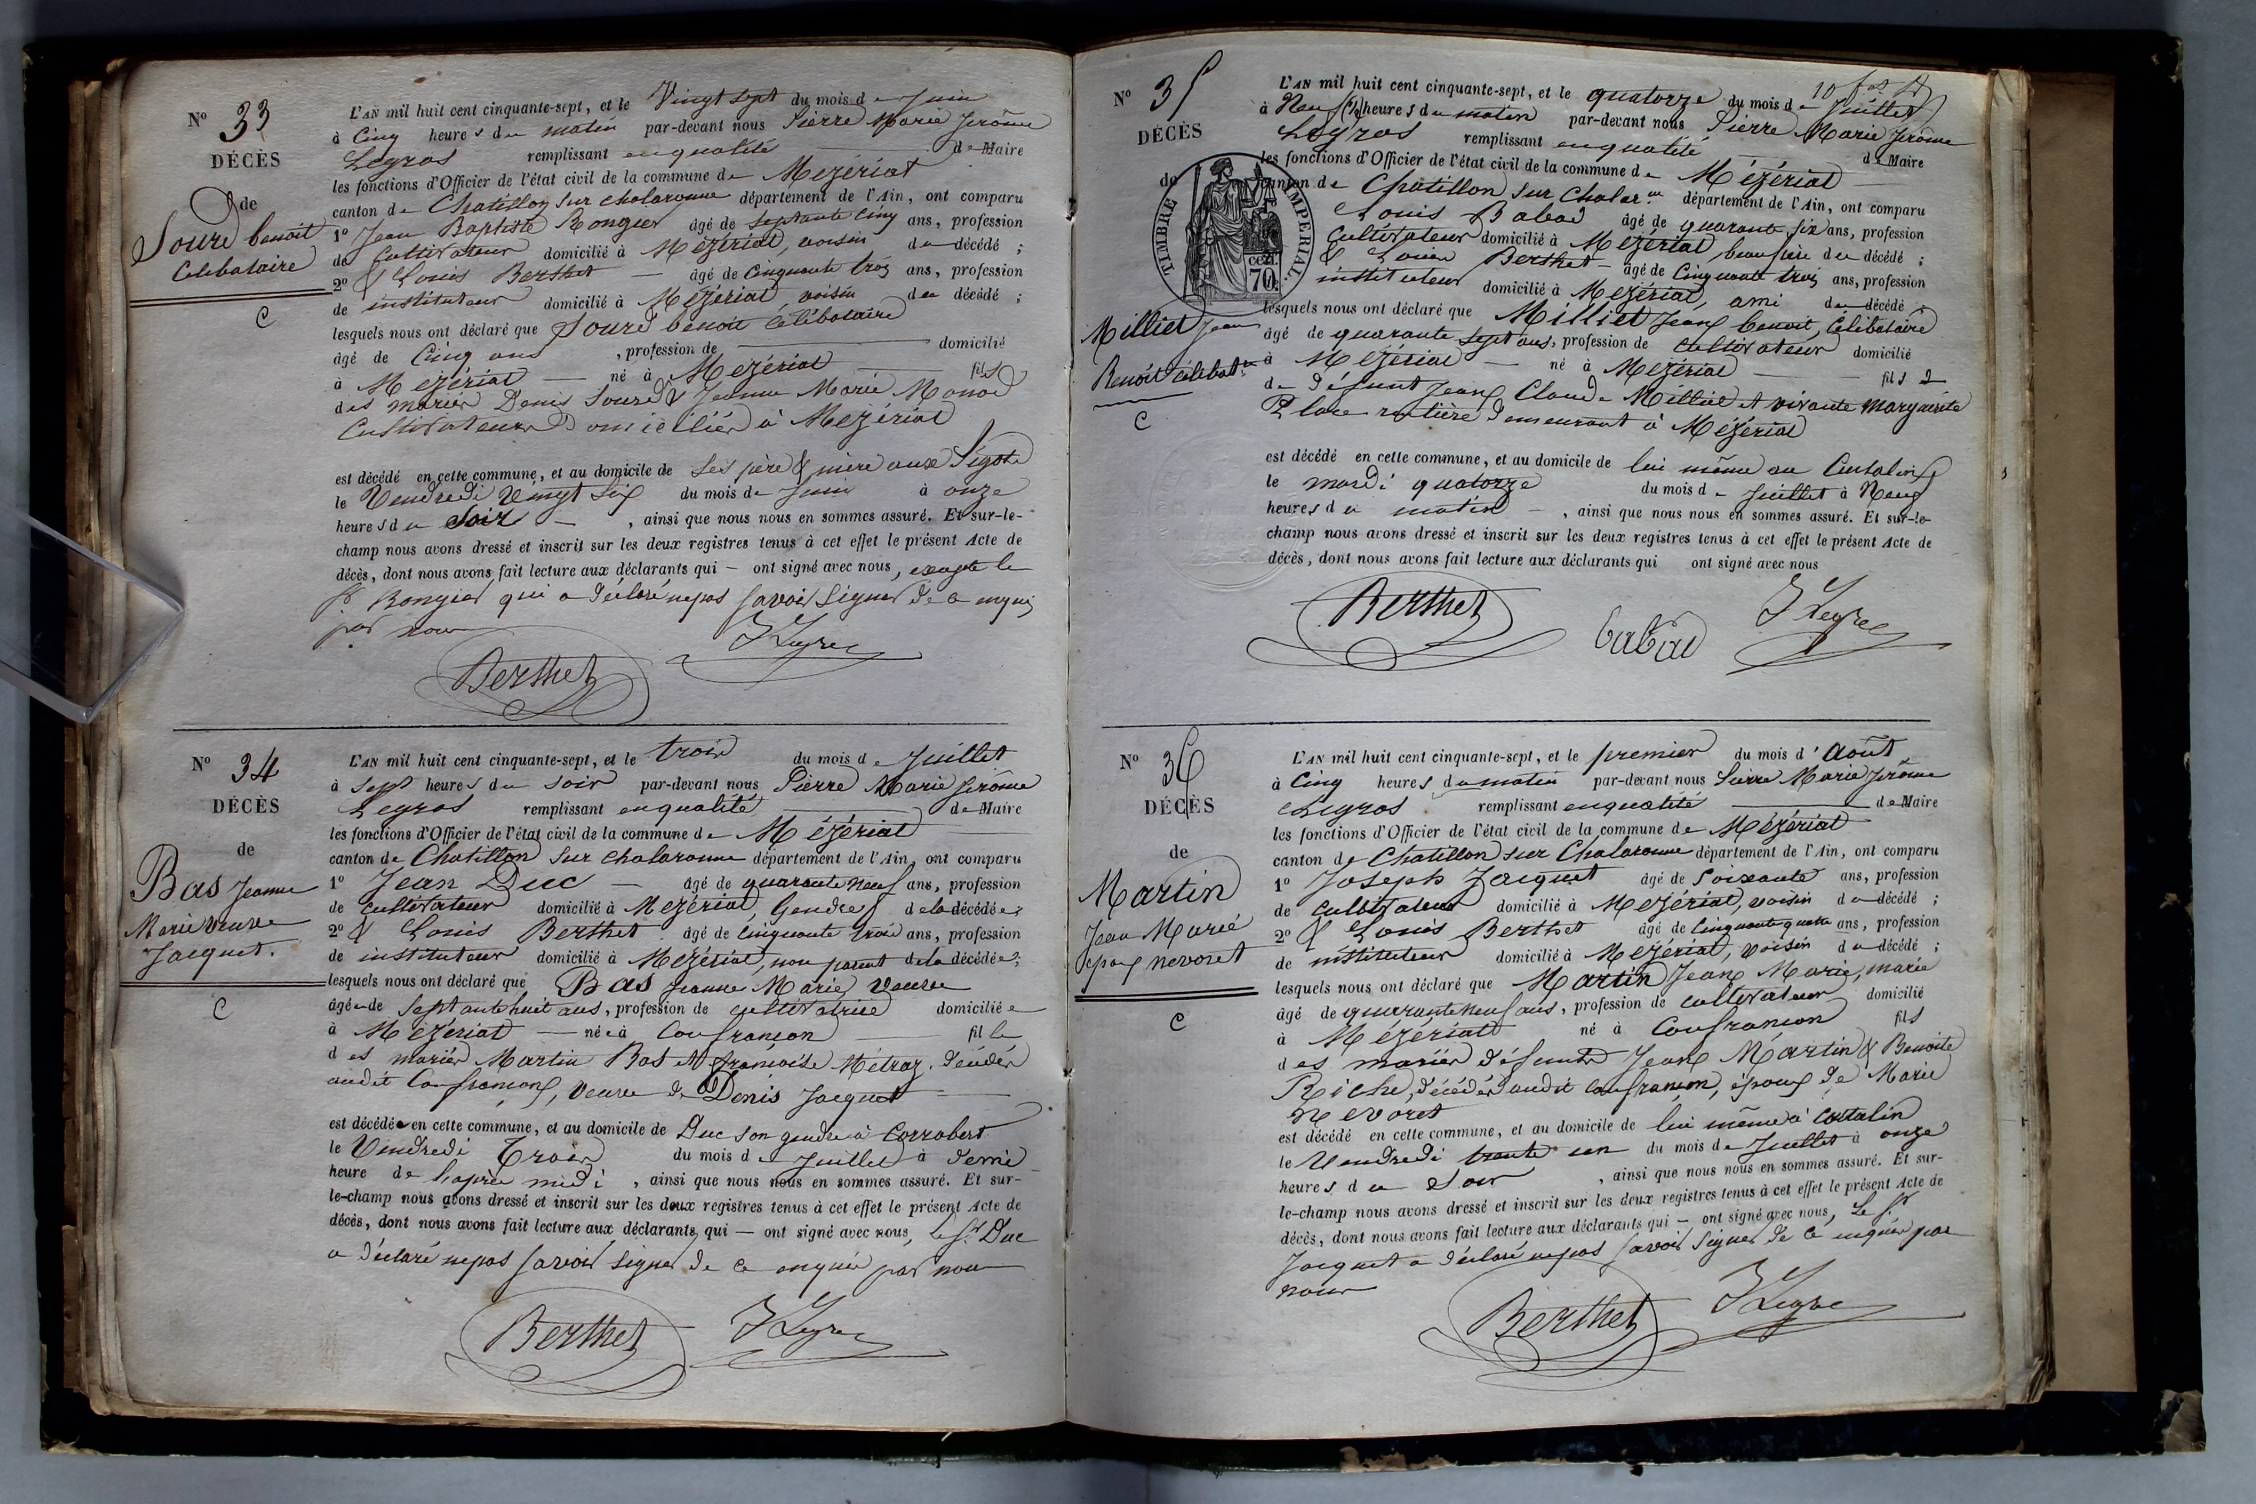 N° 33
DÉCÈS
de
Souré benoit
Celibataire
C
L'AN mil huit cent cinquante-sept, et le Vingt sept du mois de Juin
à Cinq heures du matin par-devant nous Pierre Marie Jerôme
Legras remplissant en qualité de Maire
les fonctions d'Officier de l'état civil de la commune de Mézériat
canton de Chatillon sur chalaronne département de l'Ain, ont comparu
1° Jean Baptiste Rongier âgé de septante cinq ans, profession
de Cultivateur domicilié à Mézériat, voisin du décédé ;
2° & Louis Berthet — âgé de Cinquante trois ans, profession
de instituteur domicilié à Mézériat, voisin du décédé ;
lesquels nous ont déclaré que Souré benoit Célibataire
âgé de Cinq ans , profession de domicilié
à Mezériat — né à Mezériat fils
des mariés Denis Souré & Jeanne Marie Monod
Cultivateurs Domiciliés à Mezériat
est décédé en cette commune, et au domicile de ses père & mère aux
le Vendredi Vingt six du mois de Juin à onze
heures du Soir — , ainsi que nous nous en sommes assuré. Et sur-le-
champ nous avons dressé et inscrit sur les deux registres tenus à cet effet le présent Acte de
décès, dont nous avons fait lecture aux déclarants qui — ont signé avec nous, excepté le
Sr Rongier qui a déclaré ne pas savoir signer de ce enquis
par nous
Berthet
J Legras
N° 34
DÉCÈS
de
Bas Jeanne
Marie veuve
Jacquet.
C
L'AN mil huit cent cinquante-sept, et le trois du mois de Juillet
à sept heures du soir par-devant nous Pierre Marie Jerôme
Legras remplissant en qualité de Maire
les fonctions d'Officier de l'état civil de la commune de Mézériat
canton de Chatillon sur chalaronne département de l'Ain, ont comparu
1° Jean Duc — âgé de quarante neuf ans, profession
de cultivateur domicilié à Mezériat, Gendre de la décédée ;
2° & Louis Berthet âgé de Cinquante trois ans, profession
de instituteur domicilié à Mézériat, non parent de la décédée ;
lesquels nous ont déclaré que Bas Jeanne Marie veuve
âgée de septante huit ans, profession de cultivatrice domiciliée
à Mezériat — née à Confrançon fille
des mariés Martin Bas et françoise Métraz, décédés
audit Confrançon, veuve de Denis Jacquet
est décédée en cette commune, et au domicile de Duc son gendre à Corrobert
le Vendredi Trois du mois de Juillet à demie
heure de l'après midi , ainsi que nous nous en sommes assuré. Et sur-
le-champ nous avons dressé et inscrit sur les deux registres tenus à cet effet le présent Acte de
décès, dont nous avons fait lecture aux déclarants, qui — ont signé avec nous, le Sr Duc
a déclaré ne pas savoir signer de ce enquis par nous
Berthet
J Legras
N° 35
DÉCÈS
de
Milliet Jean
Benoit célibatre
C
TIMBRE IMPERIAL
cent. 70.
L'AN mil huit cent cinquante-sept, et le quatorze du mois de Juillet
à Neuf heures du matin par-devant nous Pierre Marie Jerôme
Legras remplissant en qualité de Maire
les fonctions d'Officier de l'état civil de la commune de Mézériat
canton de Chatillon sur Chalarne département de l'Ain, ont comparu
Louis Babad âgé de quarante six ans, profession
Cultivateur domicilié à Mezériat beaufrère du décédé ;
& Louis Berthet — âgé de Cinquante trois ans, profession
instituteur domicilié à Mezériat, ami du décédé
lesquels nous ont déclaré que Milliet Jean benoit, Célibataire
âgé de quarante sept ans, profession de cultivateur domicilié
à Mezériat — né à Mezériat fils
de défunt Jean Claude Milliet et vivante Marguerite
Place rentière demeurant à Mézériat
est décédé en cette commune, et au domicile de lui même au
le mardi quatorze du mois de Juillet à Neuf
heures du matin — , ainsi que nous nous en sommes assuré. Et sur-le-
champ nous avons dressé et inscrit sur les deux registres tenus à cet effet le présent Acte de
décès, dont nous avons fait lecture aux déclarants qui ont signé avec nous
Berthet
babad
J Legras
N° 36
DÉCÈS
de
Martin
Jean Marie
époux nevoret
C
L'AN mil huit cent cinquante-sept, et le premier du mois d'Août
à Cinq heures du matin par-devant nous Pierre Marie Jerôme
Legras remplissant en qualité de Maire
les fonctions d'Officier de l'état civil de la commune de Mézériat
canton de Chatillon sur Chalaronne département de l'Ain, ont comparu
1° Joseph Jacquet âgé de soixante ans, profession
de cultivateur domicilié à Mezériat, voisin du décédé ;
2° & Louis Berthet âgé de Cinquante quatre ans, profession
de instituteur domicilié à Mezériat, voisin du décédé ;
lesquels nous ont déclaré que Martin Jean Marie, marié
âgé de quarante neuf ans, profession de cultivateur domicilié
à Mézériat né à Confrançon fils
des mariés défunts Jean Martin & Benoite
Riche, décédés audit Confrançon, époux de Marie
Nevoret
est décédé en cette commune, et au domicile de lui même à
le Vendredi trente un du mois de Juillet à onze
heures du Soir , ainsi que nous nous en sommes assuré. Et sur-
le-champ nous avons dressé et inscrit sur les deux registres tenus à cet effet le présent Acte de
décès, dont nous avons fait lecture aux déclarants qui — ont signé avec nous, le Sr
Jacquet a déclaré ne pas savoir signer de ce enquis par
nous
Berthet
J Legras